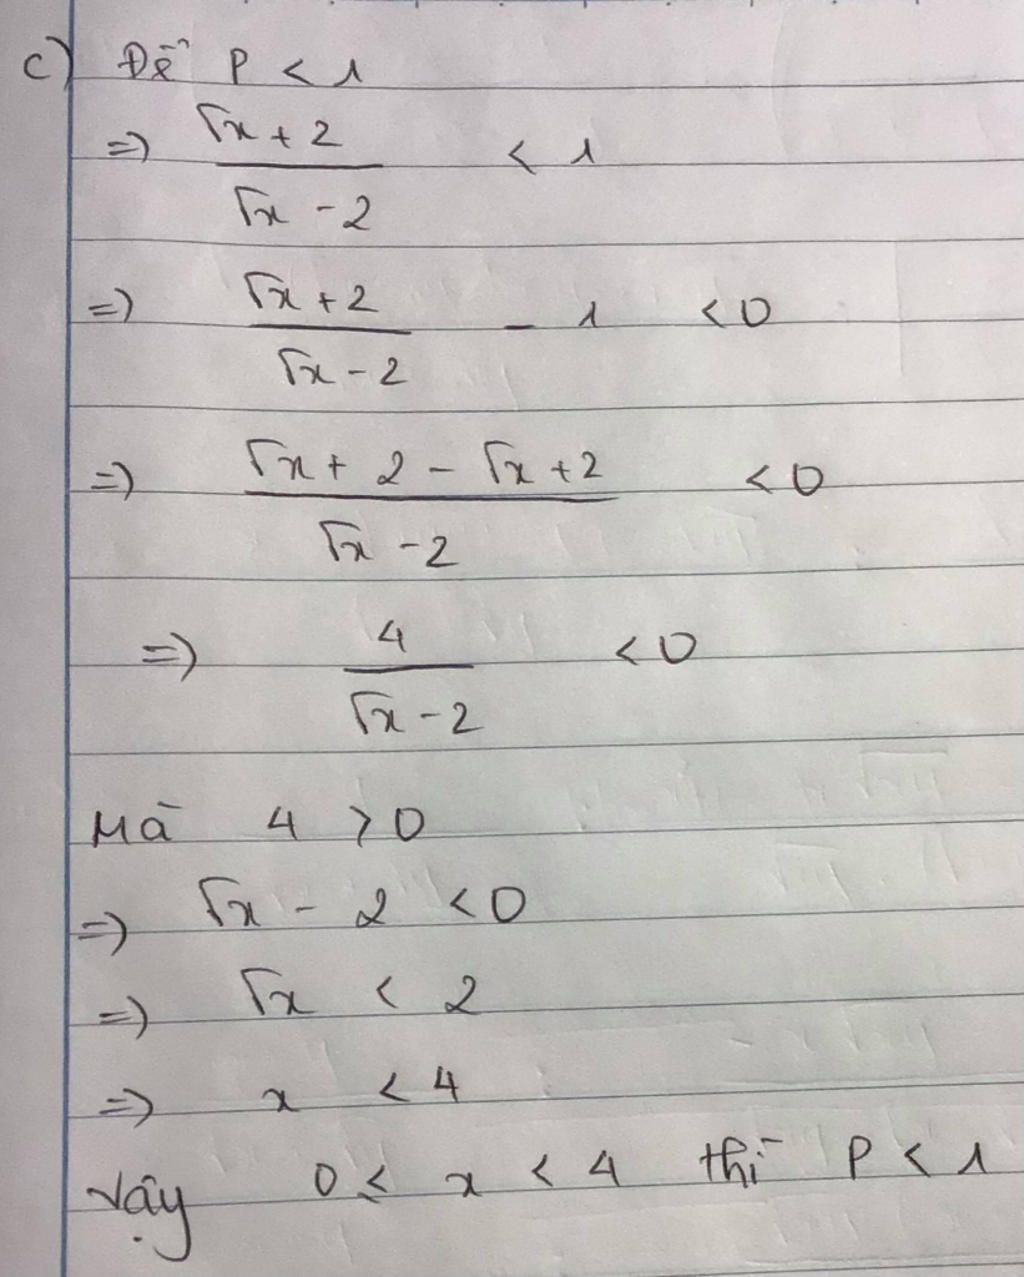 c) Để P < 1
=> √x + 2 / √x - 2 < 1
=> √x + 2 / √x - 2 - 1 < 0
=> √x + 2 - √x + 2 / √x - 2 < 0
=> 4 / √x - 2 < 0
Mà 4 > 0
=> √x - 2 < 0
=> √x < 2
=> x < 4
Vậy 0 ≤ x < 4 thì P < 1